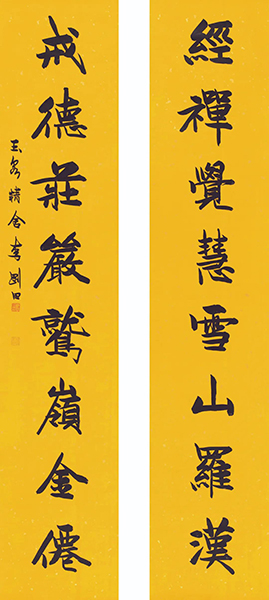 經禪覺慧雪山羅漢
戒德莊嚴鷲嶺金僊
玉泉精舍李劉口